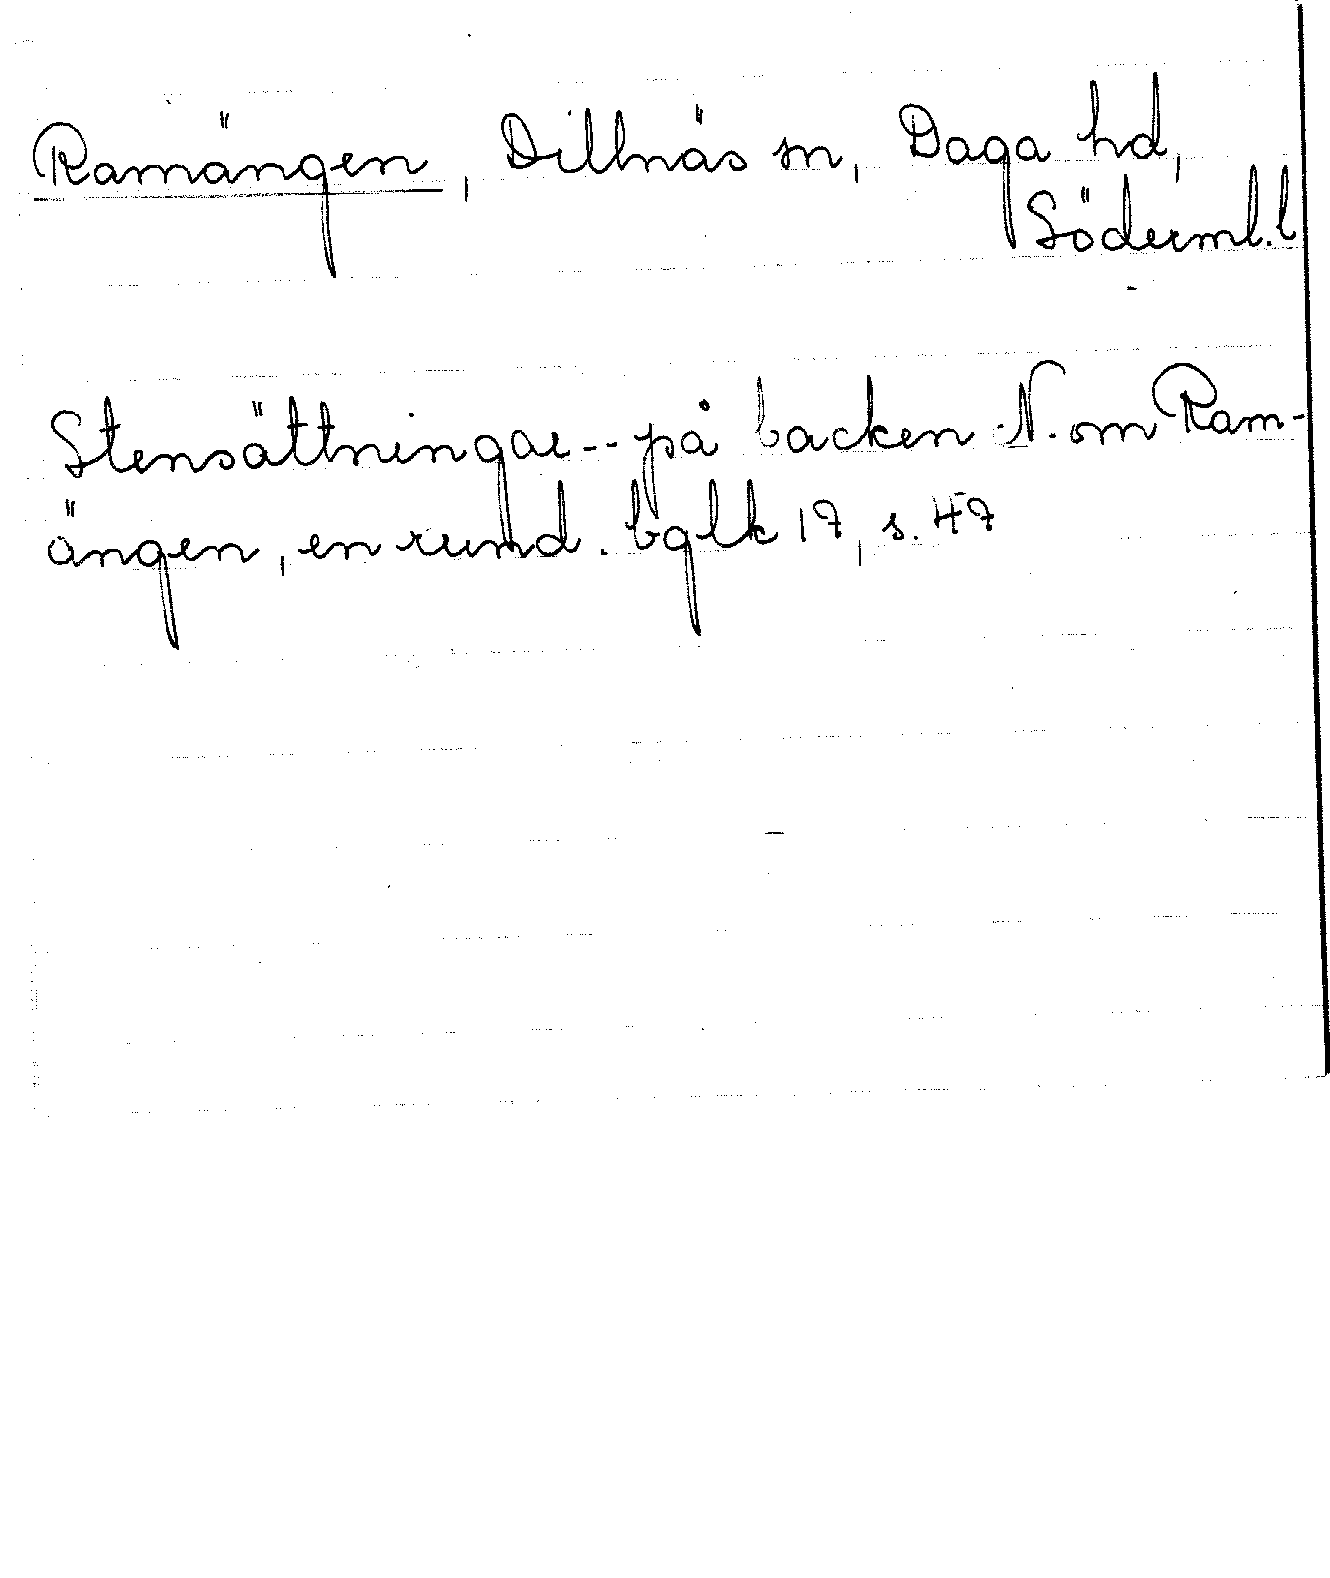 Ramängen, Dillnäs sn, Daga hd,
Söderml. l
Stensättningar -- på backen N. om Ram-
ängen, en rund. bglk 17, s. 47